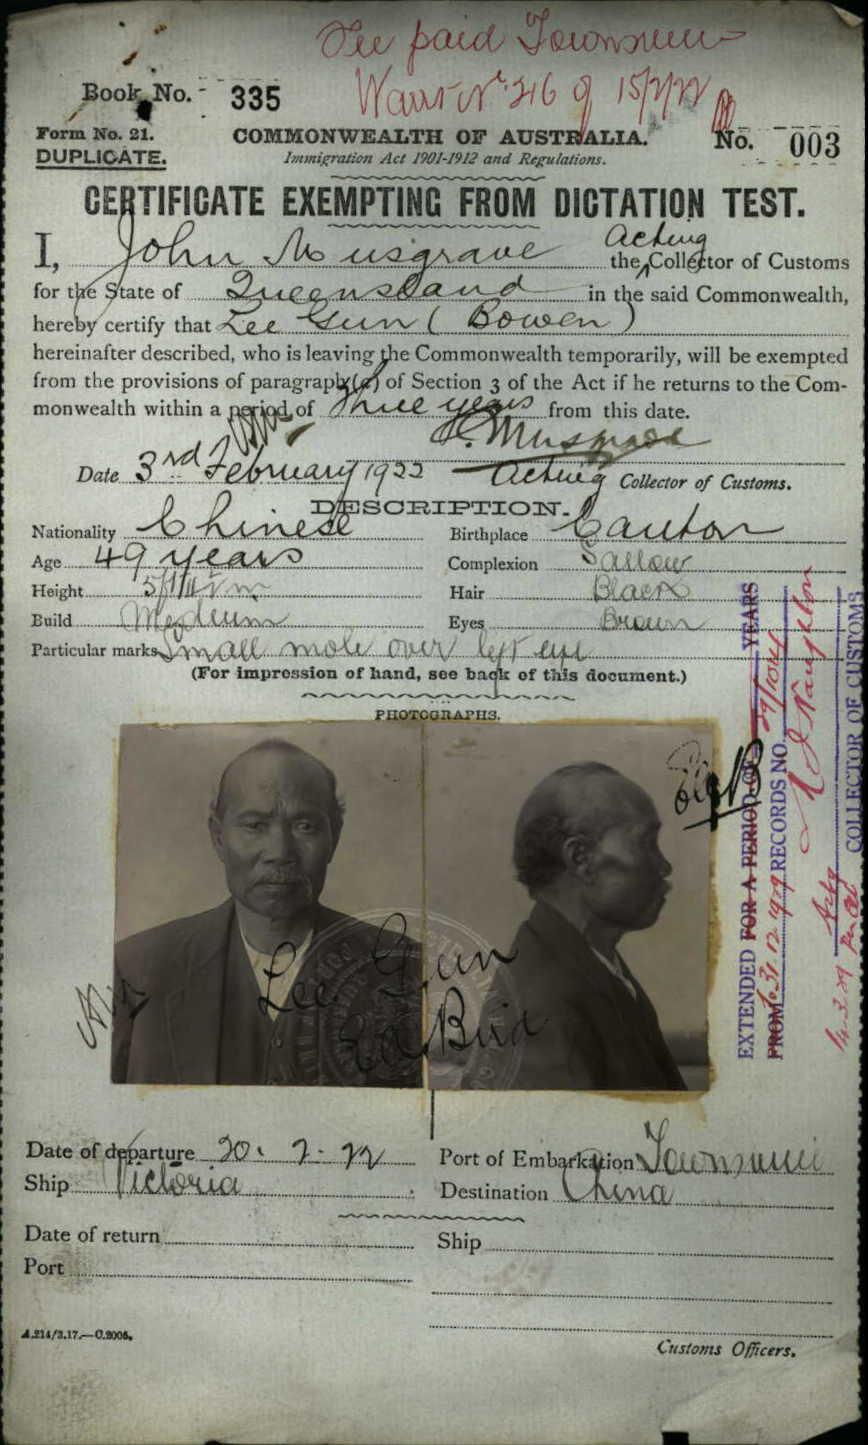 Fee paid Townsville
Warst No 216 of 15/2/22
Book No. 335
Form No. 21.
DUPLICATE.
COMMONWEALTH OF AUSTRALIA.
Immigration Act 1901-1912 and Regulations.
No. 003
CERTIFICATE EXEMPTING FROM DICTATION TEST.
I, John Musgrave the Acting Collector of Customs
for the State of Queensland in the said Commonwealth,
hereby certify that Lee Gun (Bowen)
hereinafter described, who is leaving the Commonwealth temporarily, will be exempted
from the provisions of paragraph (a) of Section 3 of the Act if he returns to the Com-
monwealth within a period of three years from this date.
J. Musgrave
Date 3rd February 1922 Acting Collector of Customs.
DESCRIPTION.
Nationality Chinese Birthplace Canton
Age 49 years Complexion Sallow
Height Hair Black
Build Medium Eyes Brown
Particular marks Small mole over left eye
(For impression of hand, see back of this document.)
PHOTOGRAPHS.
Lee Gun
EXTENDED FOR A PERIOD OF YEARS
FROM 31.12.1929 RECORDS NO.
COLLECTOR OF CUSTOMS
Date of departure 20.2.22 Port of Embarkation Townsville
Ship Victoria Destination China
Date of return Ship
Port
A.214/3.17.—C.2006.
Customs Officers.